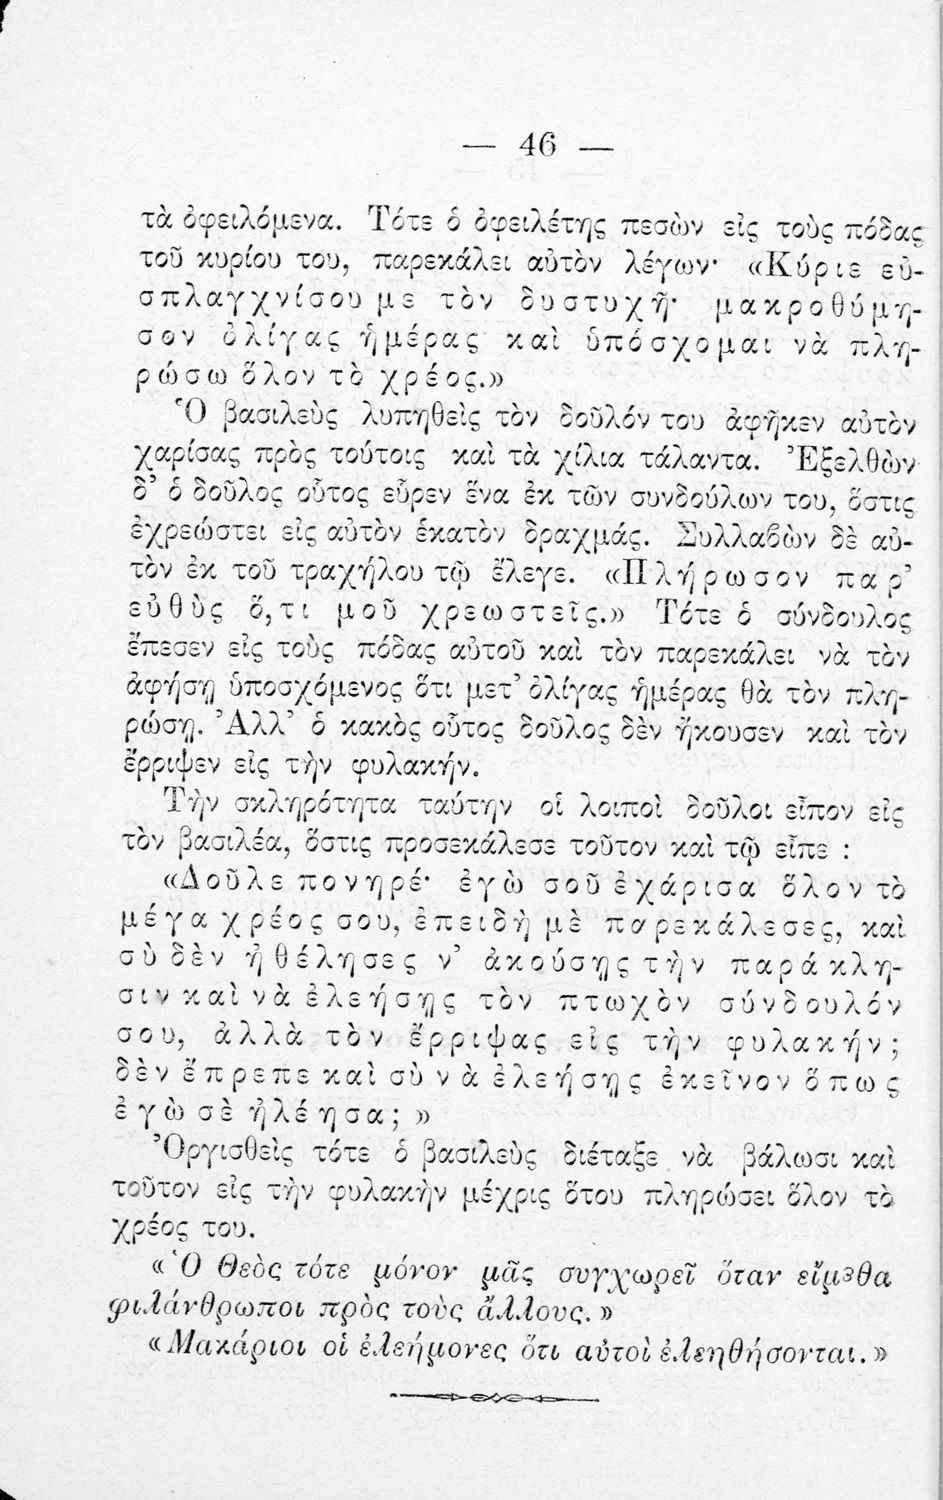 — 46 —
τὰ ὀφειλόμενα. Τότε ὁ ὀφειλέτης πεσὼν εἰς τοὺς πόδας
τοῦ κυρίου του, παρεκάλει αὐτὸν λέγων· «Κύριε εὐ-
σπλαγχνίσου με τὸν δυστυχῆ· μακροθύμη-
σον ὀλίγας ἡμέρας καὶ ὑπόσχομαι νὰ πλη-
ρώσω ὅλον τὸ χρέος.»
Ὁ βασιλεὺς λυπηθεὶς τὸν δοῦλόν του ἀφῆκεν αὐτὸν
χαρίσας πρὸς τούτοις καὶ τὰ χίλια τάλαντα. Ἐξελθὼν
δ’ ὁ δοῦλος οὗτος εὗρεν ἕνα ἐκ τῶν συνδούλων του, ὅστις
ἐχρεώστει εἰς αὐτὸν ἑκατὸν δραχμάς. Συλλαβὼν δὲ αὐ-
τὸν ἐκ τοῦ τραχήλου τῷ ἔλεγε. «Πλήρωσον παρ’
εὐθὺς ὅ,τι μοῦ χρεωστεῖς.» Τότε ὁ σύνδουλος
ἔπεσεν εἰς τοὺς πόδας αὐτοῦ καὶ τὸν παρεκάλει νὰ τὸν
ἀφήσῃ ὑποσχόμενος ὅτι μετ’ ὀλίγας ἡμέρας θὰ τὸν πλη-
ρώσῃ. Ἀλλ’ ὁ κακὸς οὗτος δοῦλος δὲν ἤκουσεν καὶ τὸν
ἔρριψεν εἰς τὴν φυλακήν.
Τὴν σκληρότητα ταύτην οἱ λοιποὶ δοῦλοι εἶπον εἰς
τὸν βασιλέα, ὅστις προσεκάλεσε τοῦτον καὶ τῷ εἶπε :
«Δοῦλε πονηρέ· ἐγὼ σοῦ ἐχάρισα ὅλον τὸ
μέγα χρέος σου, ἐπειδὴ μὲ παρεκάλεσες, καὶ
σὺ δὲν ἠθέλησες ν’ ἀκούσῃς τὴν παράκλη-
σιν καὶ νὰ ἐλεήσῃς τὸν πτωχὸν σύνδουλόν
σου, ἀλλὰ τὸν ἔρριψας εἰς τὴν φυλακήν;
δὲν ἔπρεπε καὶ σὺ νὰ ἐλεήσῃς ἐκεῖνον ὅπως
ἐγὼ σὲ ἠλέησα; »
Ὀργισθεὶς τότε ὁ βασιλεὺς διέταξε νὰ βάλωσι καὶ
τοῦτον εἰς τὴν φυλακὴν μέχρις ὅτου πληρώσει ὅλον τὸ
χρέος του.
«Ὁ Θεὸς τότε μόνον μᾶς συγχωρεῖ ὅταν εἴμεθα
φιλάνθρωποι πρὸς τοὺς ἄλλους.»
«Μακάριοι οἱ ἐλεήμονες ὅτι αὐτοὶ ἐλεηθήσονται.»